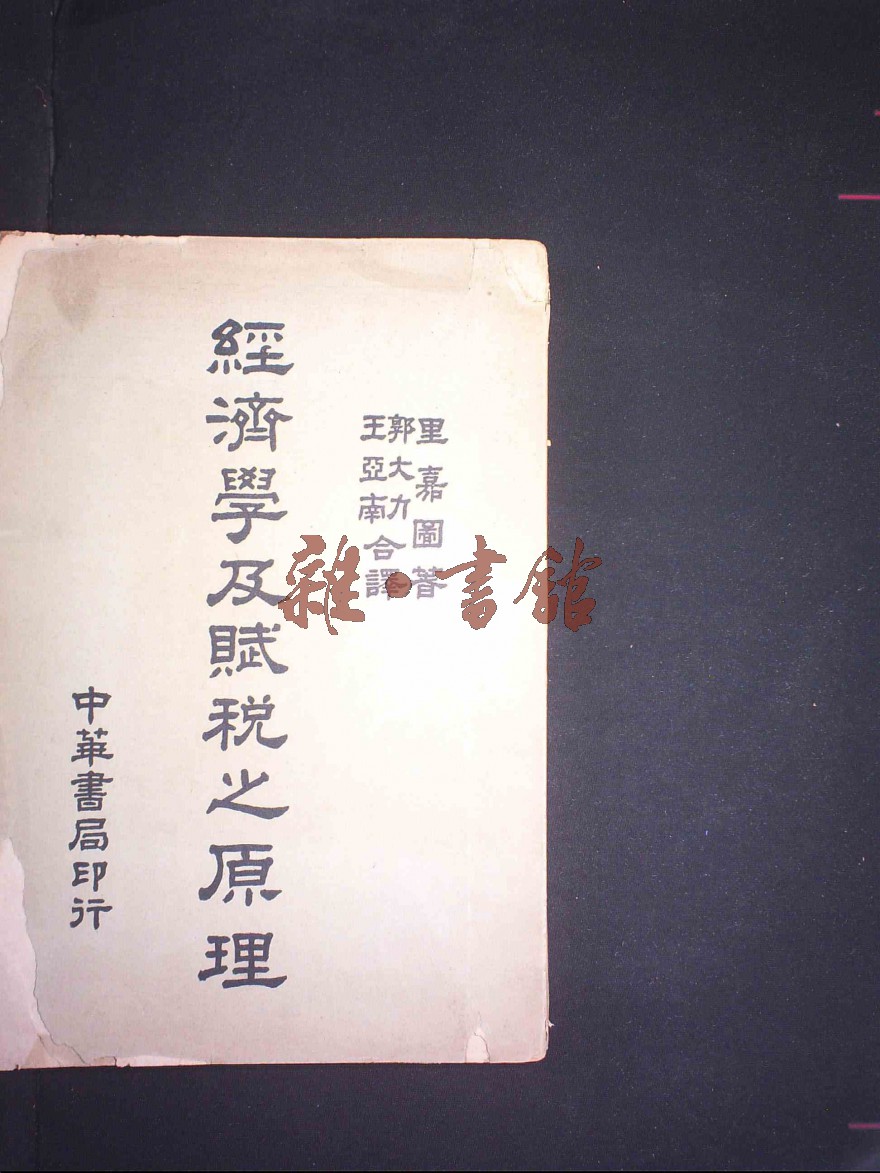 里嘉圖著
郭大力
王亞南
合譯
經濟學及賦稅之原理
中華書局印行
雜·書館